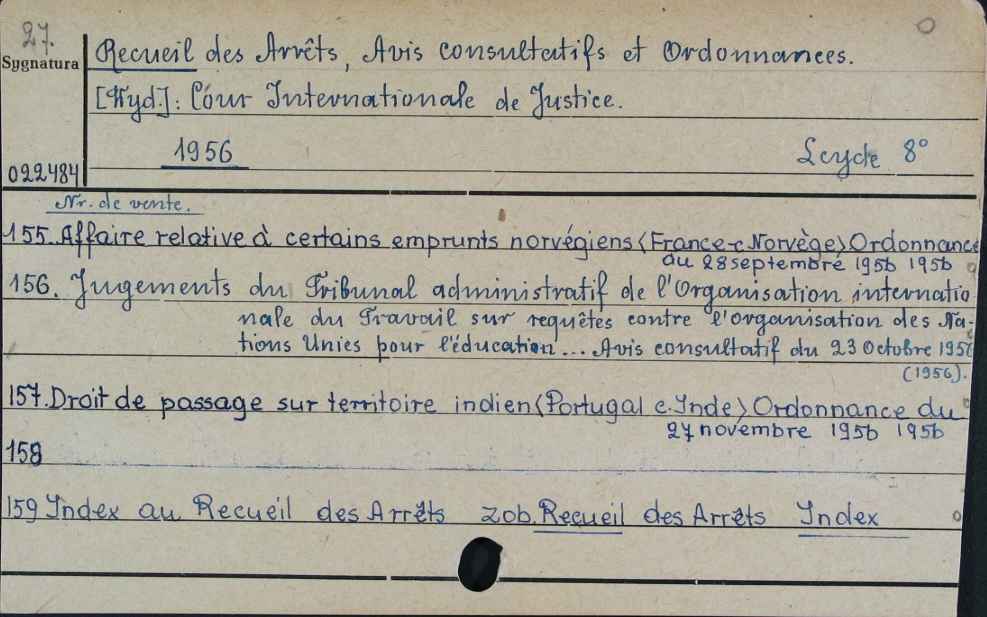 27.
Sygnatura
Recueil des Arrêts, Avis consultatifs et Ordonnances.
[Wyd.]: Cour Internationale de Justice.
1956 Leyde 8°
022484
Nr. de vente.
155. Affaire relative à certains emprunts norvégiens (France-c Norvège) Ordonnance
du 28 septembre 1956 1956
156. Jugements du Tribunal administratif de l'Organisation internatio
nale du Travail sur requêtes contre l'organisation des Na-
tions Unies pour l'éducation... Avis consultatif du 23 Octobre 1956
(1956).
157. Droit de passage sur territoire indien (Portugal c. Inde) Ordonnance du
27 novembre 1956 1956
158
159 Index au Recueil des Arrêts zob. Recueil des Arrêts Index